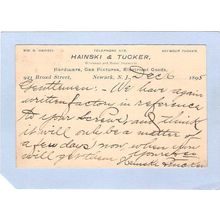 TELEPHONE
HAINSKI & TUCKER,
Hardware, Gas Fixtures, Electrical Goods,
Broad Street, Newark, N. J., Dec 6 1895
Gentlemen:- We have again
written factory in reference
to your screws and think
it will only be a matter of
a few days now when you
will get them. Yours
Hainski & Tucker